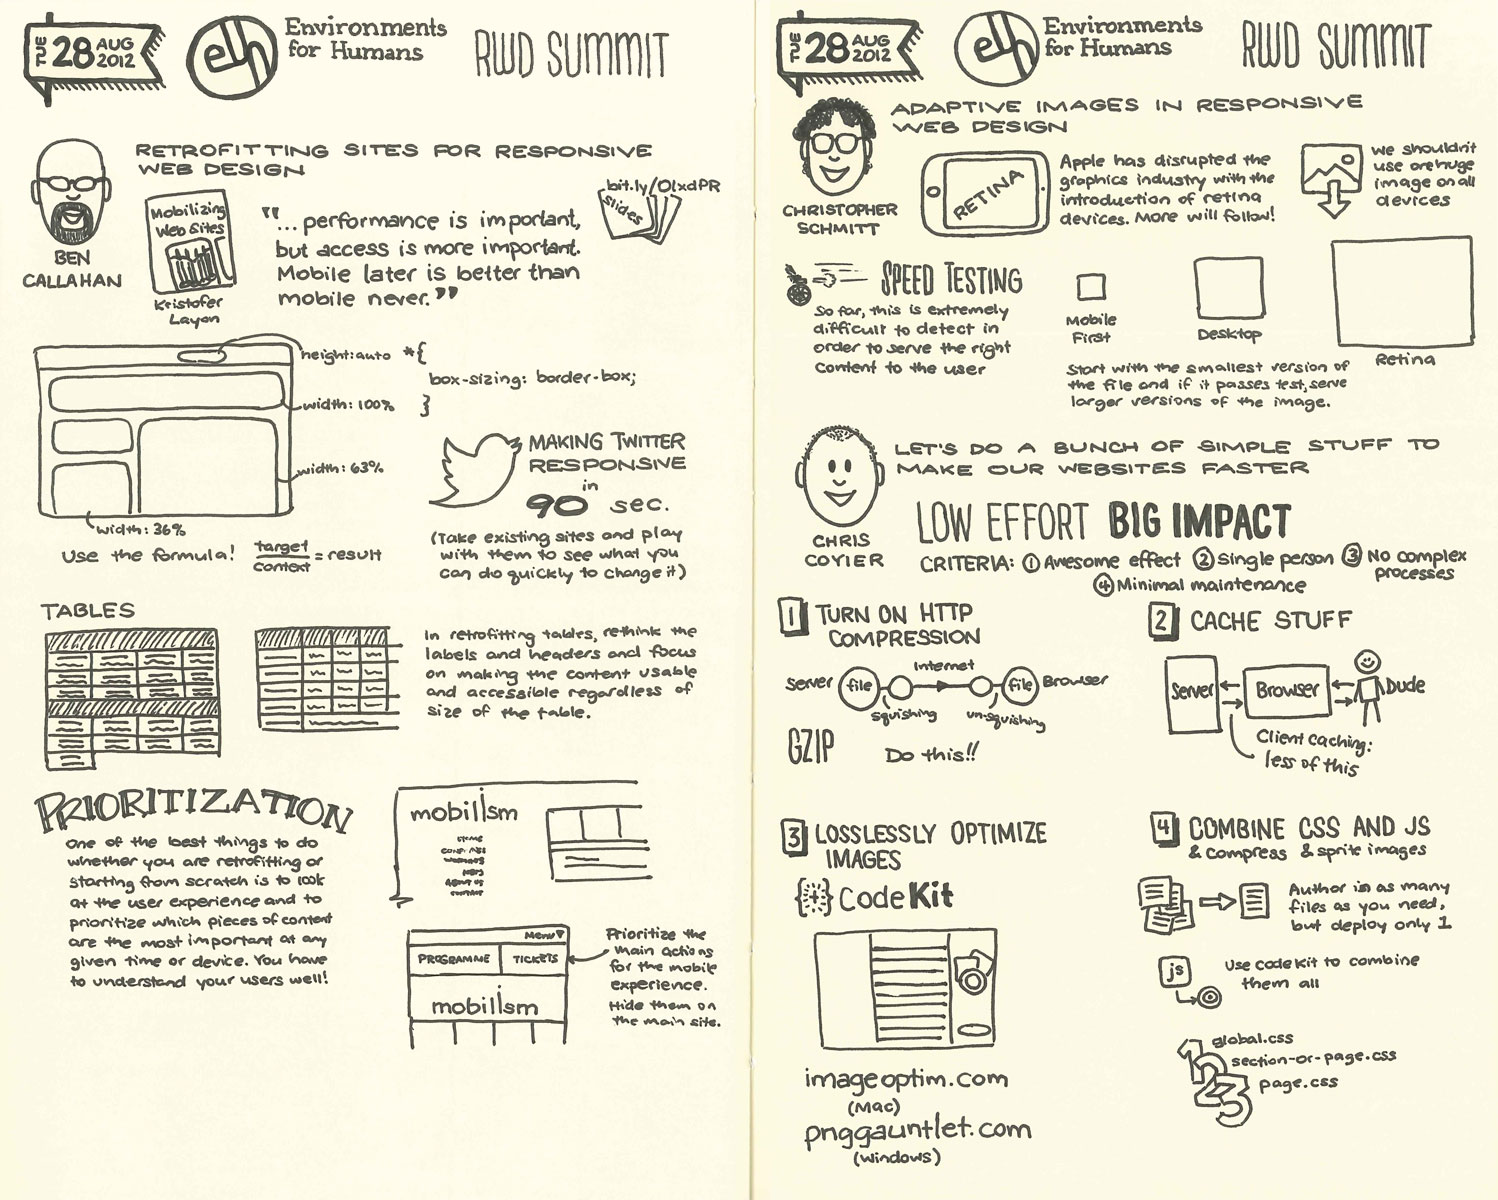 TUE 28 AUG 2012
elh
Environments
for Humans
RWD SUMMIT
RETROFITTING SITES FOR RESPONSIVE
WEB DESIGN
BEN
CALLAHAN
Mobilizing
Web Sites
Kristofer
Layon
"... performance is important,
but access is more important.
Mobile later is better than
mobile never."
bit.ly/OlxdPR
slides
height:auto
*{
box-sizing: border-box;
}
width: 100%
width: 63%
width: 36%
Use the formula!
target
context
= result
MAKING TWITTER
RESPONSIVE
in
90 sec.
(Take existing sites and play
with them to see what you
can do quickly to change it)
TABLES
In retrofitting tables, rethink the
labels and headers and focus
on making the content usable
and accessible regardless of
size of the table.
PRIORITIZATION
One of the best things to do
whether you are retrofitting or
starting from scratch is to look
at the user experience and to
prioritize which pieces of content
are the most important at any
given time or device. You have
to understand your users well!
mobilism
HOME
ABOUT US
CONTACT
Menu▼
PROGRAMME
TICKETS
mobilism
Prioritize the
main actions
for the mobile
experience.
Hide them on
the main site.
TUE 28 AUG 2012
elh
Environments
for Humans
RWD SUMMIT
ADAPTIVE IMAGES IN RESPONSIVE
WEB DESIGN
CHRISTOPHER
SCHMITT
RETINA
Apple has disrupted the
graphics industry with the
introduction of retina
devices. More will follow!
We shouldn't
use one huge
image on all
devices
SPEED TESTING
So far, this is extremely
difficult to detect in
order to serve the right
content to the user
Mobile
First
Desktop
Retina
Start with the smallest version of
the file and if it passes test, serve
larger versions of the image.
LET'S DO A BUNCH OF SIMPLE STUFF TO
MAKE OUR WEBSITES FASTER
CHRIS
COYIER
LOW EFFORT BIG IMPACT
CRITERIA: ① Awesome effect ② Single person ③ No complex
processes
④ Minimal maintenance
1 TURN ON HTTP
COMPRESSION
Server
file
squishing
Internet
un-squishing
file
Browser
GZIP
Do this!!
2 CACHE STUFF
Server
Browser
Dude
Client caching:
less of this
3 LOSSLESSLY OPTIMIZE
IMAGES
{+} CodeKit
imageoptim.com
(Mac)
pnggauntlet.com
(Windows)
4 COMBINE CSS AND JS
& compress & sprite images
Author in as many
files as you need,
but deploy only 1
js
Use CodeKit to combine
them all
1 global.css
2 section-or-page.css
3 page.css